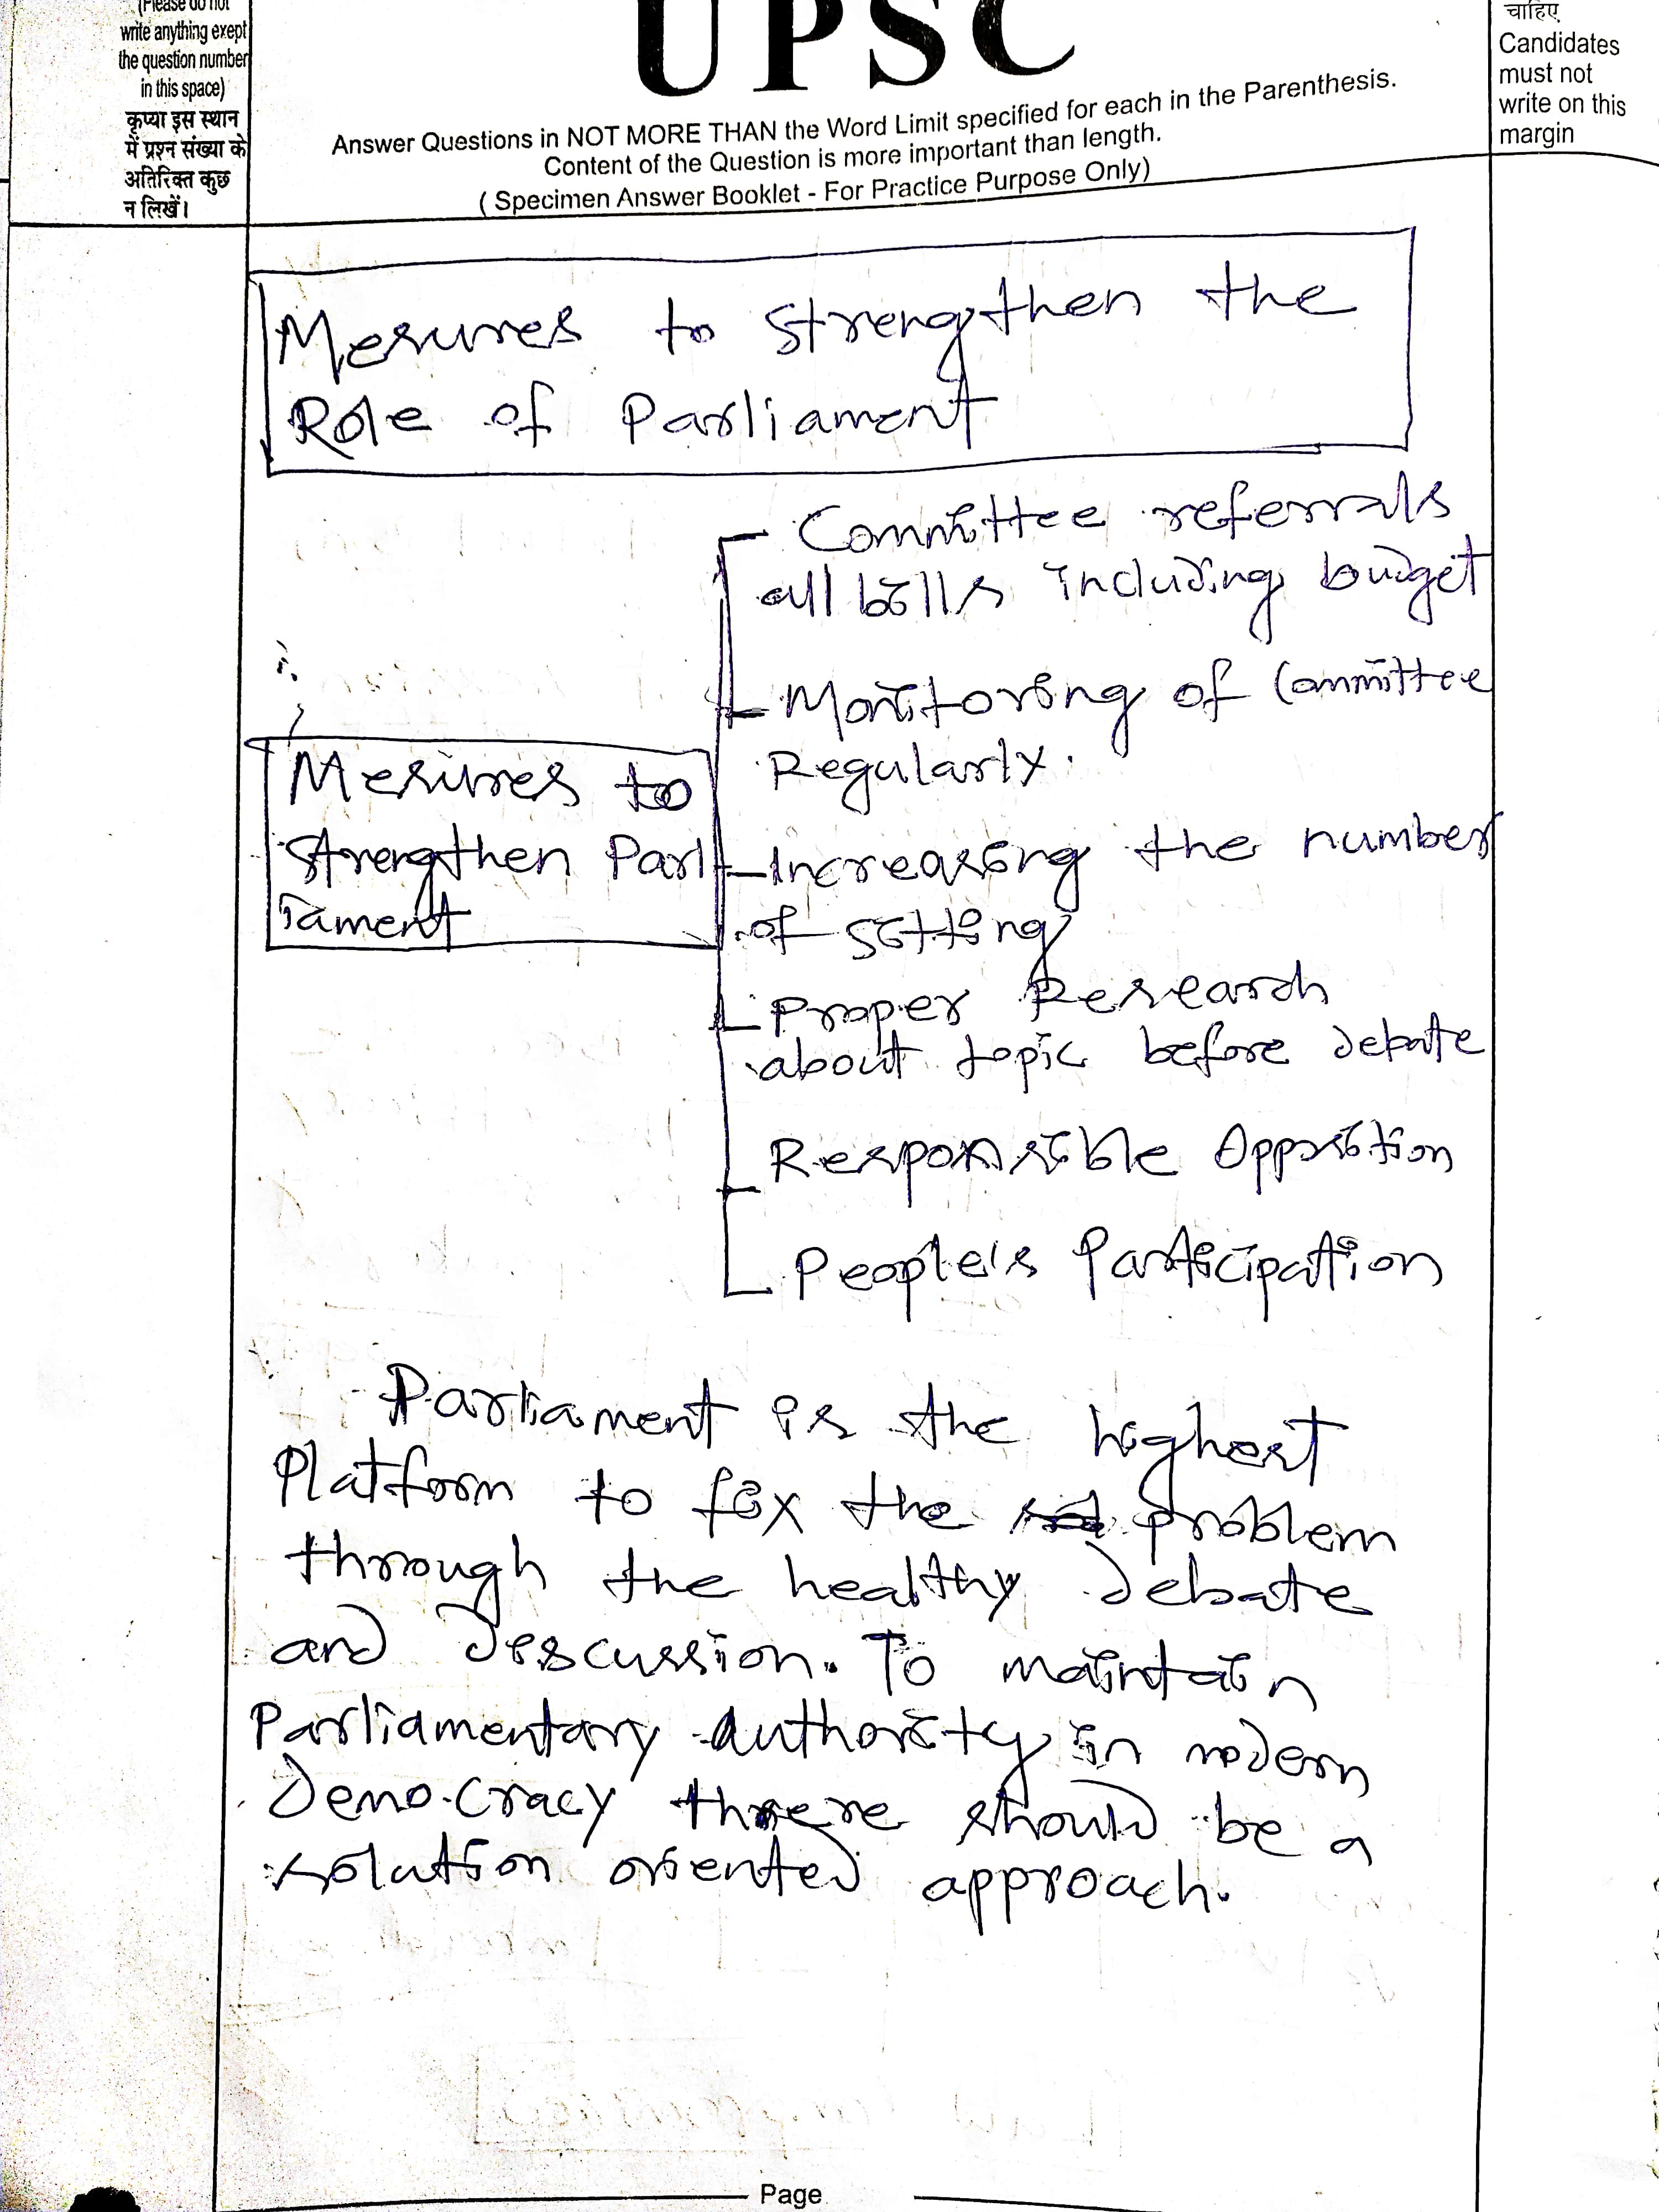 (Please do not
write anything exept
the question number
in this space)
कृप्या इस स्थान
में प्रश्न संख्या के
अतिरिक्त कुछ
न लिखें।
UPSC
Answer Questions in NOT MORE THAN the Word Limit specified for each in the Parenthesis.
Content of the Question is more important than length.
( Specimen Answer Booklet - For Practice Purpose Only)
चाहिए
Candidates
must not
write on this
margin
Mesures to strengthen the
Role of Parliament
Committee referrals
all bills including budget
Monitoring of Committee
Regularly.
Mesures to
strengthen Parl
iament
Increasing the number
of sitting
Proper Research
about topic before debate
Responsible Opposition
People's Participation
Parliament is the highest
Platform to fix the problem
through the healthy debate
and discussion. To maintain
Parliamentary authority in modern
Democracy there should be a
solution oriented approach.
Page